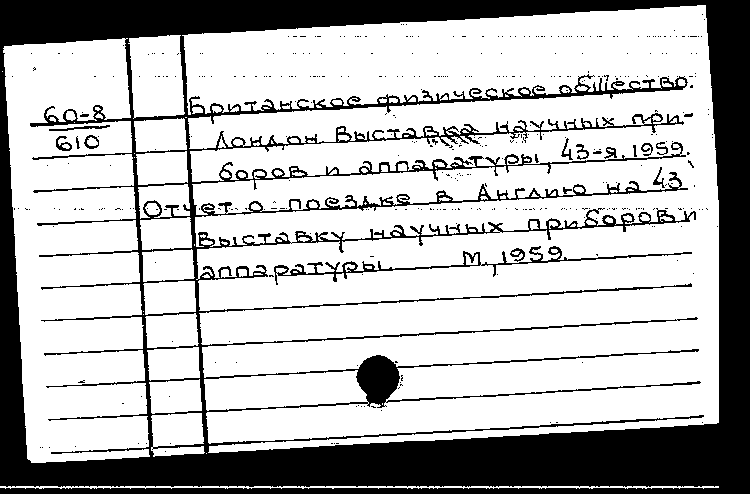 60-8
610
Британское физическое общество.
Лондон. Выставка научных при-
боров и аппаратуры, 43-я. 1959.
Отчет о поездке в Англию на 43
выставку научных приборов и
аппаратуры. М., 1959.